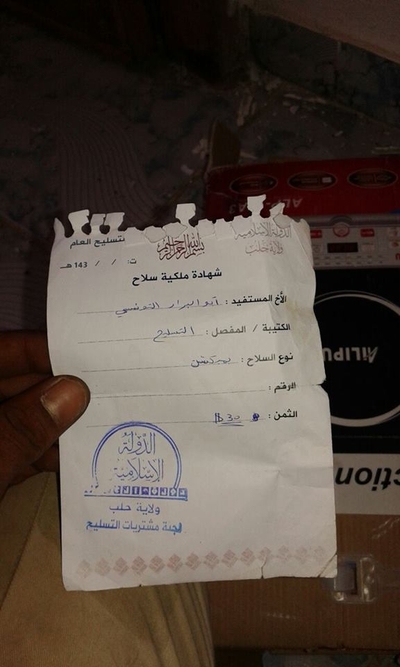 الدولة الإسلامية
ولاية حلب
بسم الله الرحمن الرحيم
تسليح العام
ت: / / 143 هـ
شهادة ملكية سلاح
الأخ المستفيد : أبو البراء التونسي
الكتيبة / المفصل : التسليح
نوع السلاح :
الرقم :
الثمن : 30 $
الدولة
الإسلامية
ولاية حلب
لجنة مشتريات التسليح
AILIPU
ction